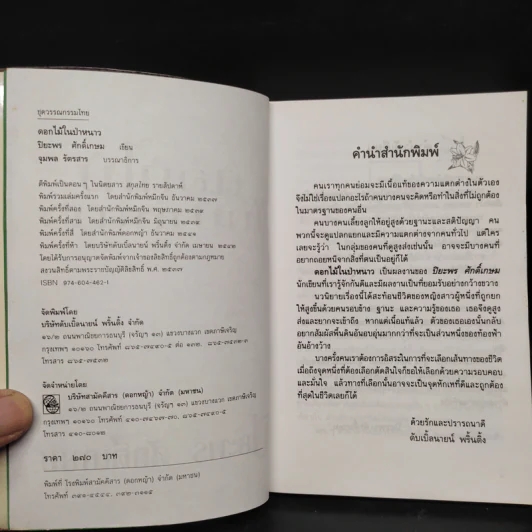 ยุควรรณกรรมไทย
ดอกไม้ในป่าหนาว
ปิยะพร ศักดิ์เกษม เขียน
จุมพล รัตรสาร บรรณาธิการ
ตีพิมพ์เป็นตอนๆ ในนิตยสาร สกุลไทย รายสัปดาห์
พิมพ์รวมเล่มครั้งแรก โดยสำนักพิมพ์หมึกจีน ธันวาคม ๒๕๓๗
พิมพ์ครั้งที่สอง โดยสำนักพิมพ์หมึกจีน พฤษภาคม
พิมพ์ครั้งที่สาม โดยสำนักพิมพ์หมึกจีน มิถุนายน
พิมพ์ครั้งที่สี่ โดยสำนักพิมพ์ดอกหญ้า ธันวาคม
พิมพ์ครั้งที่ห้า โดยบริษัทดับเบิ้ลนายน์ พริ้นติ้ง จำกัด เมษายน
โดยได้รับการอนุญาตจัดพิมพ์จากเจ้าของลิขสิทธิ์ถูกต้องตามกฎหมาย
สงวนสิทธิ์ตามพระราชบัญญัติลิขสิทธิ์ พ.ศ. ๒๕๓๗
ISBN 974-604-462-1
จัดพิมพ์โดย
บริษัทดับเบิ้ลนายน์ พริ้นติ้ง จำกัด
๑๖/๒ ถนนพาณิชยการธนบุรี (จรัญฯ ๑๓) แขวงบางแวก เขตภาษีเจริญ
กรุงเทพฯ ๑๐๑๖๐ โทรศัพท์
โทรสาร
จัดจำหน่ายโดย
บริษัทสามัคคีสาร (ดอกหญ้า) จำกัด (มหาชน)
๑๖/๒ ถนนพาณิชยการธนบุรี (จรัญฯ ๑๓) แขวงบางแวก เขตภาษีเจริญ
กรุงเทพฯ ๑๐๑๖๐ โทรศัพท์
โทรสาร
ราคา ๒๗๐ บาท
พิมพ์ที่ โรงพิมพ์สามัคคีสาร (ดอกหญ้า) จำกัด (มหาชน)
โทรศัพท์
คำนำสำนักพิมพ์
คนเราทุกคนย่อมจะมีเนื้อแท้ของความแตกต่างในตัวเอง
จึงไม่ใช่เรื่องแปลกอะไรถ้าคนบางคนจะคิดหรือทำในสิ่งที่ไม่ถูกต้อง
ในมาตรฐานของคนอื่น
คนบางคนเลี้ยงลูกให้อยู่สูงด้วยฐานะและสติปัญญา คน
พวกนี้จะดูแปลกแยกและมีความแตกต่างจากคนทั่วไป แต่ใคร
เลยจะรู้ว่า ในกลุ่มของคนที่ดูสูงส่งเช่นนั้น อาจจะมีบางคนที่
อยากถอยหนีจากสิ่งที่ตนเป็นอยู่ก็ได้
ดอกไม้ในป่าหนาว เป็นผลงานของ ปิยะพร ศักดิ์เกษม
นักเขียนที่เรารู้จักกันดีและมีผลงานเป็นที่ยอมรับอย่างกว้างขวาง
นวนิยายเรื่องนี้ได้สะท้อนชีวิตของหญิงสาวผู้หนึ่งที่ถูกยก
ให้สูงขึ้นด้วยคนรอบข้าง ฐานะ และความรู้ของเธอ เธอจึงดูสูง
ส่งและยากจะเข้าถึง หากแต่เนื้อแท้แล้ว ตัวของเธอเองนั้นกลับ
อยากสัมผัสพื้นดินอันอบอุ่นมากกว่าที่จะเป็นส่วนหนึ่งของท้องฟ้า
อันอ้างว้าง
บางครั้งคนเราต้องการอิสระในการที่จะเลือกเส้นทางของชีวิต
เมื่อถึงจุดหนึ่งที่ต้องเลือกตัดสินใจก็ขอให้เลือกด้วยความรอบคอบ
และมั่นใจ แล้วทางที่เลือกนั้นอาจจะเป็นจุดพักเท้าที่ดีและถูกต้อง
ที่สุดในชีวิตเลยก็ได้
ด้วยรักและปรารถนาดี
ดับเบิ้ลนายน์ พริ้นติ้ง